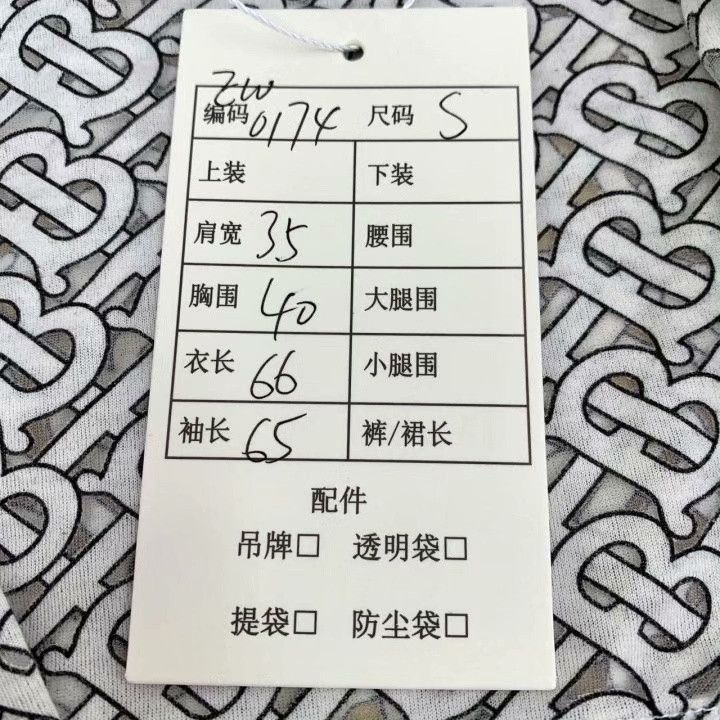 ZW
编码 0174 尺码 S
上装 下装
肩宽 35 腰围
胸围 40 大腿围
衣长 66 小腿围
袖长 65 裤/裙长
配件
吊牌□ 透明袋□
提袋□ 防尘袋□